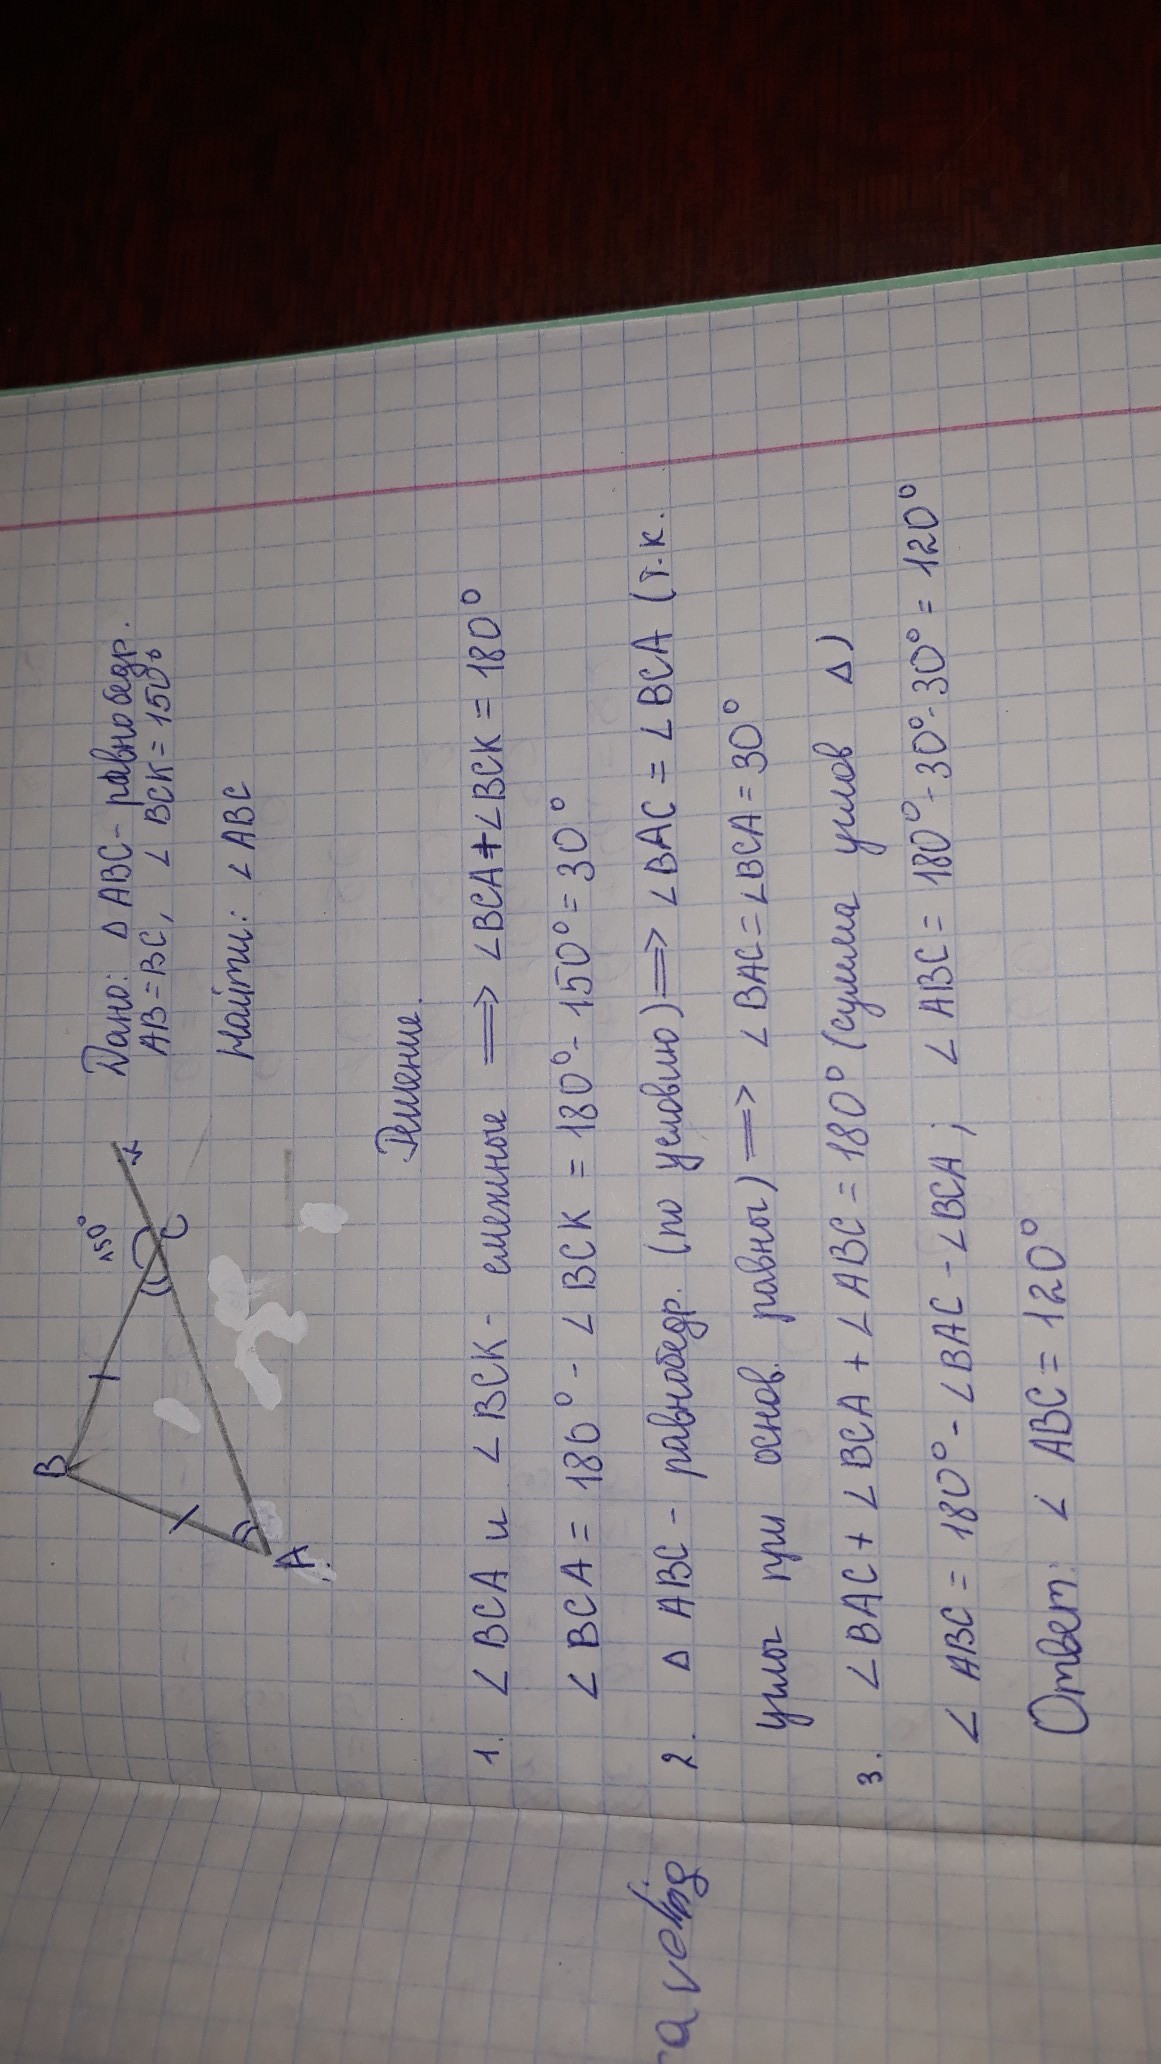 Дано: Δ ABC - равнобедр.
AB = BC, ∠ BCK = 150°
Найти: ∠ ABC
B
150°
C
K
A
Решение.
1. ∠ BCA и ∠ BCK - смежные ⟹ ∠BCA + ∠BCK = 180°
∠ BCA = 180° - ∠ BCK = 180° - 150° = 30°
2. Δ ABC - равнобедр. (по условию) ⟹ ∠BAC = ∠BCA (т.к.
углы при основ. равны) ⟹ ∠BAC = ∠BCA = 30°
3. ∠BAC + ∠BCA + ∠ABC = 180° (сумма углов Δ)
∠ ABC = 180° - ∠BAC - ∠BCA ; ∠ ABC = 180° - 30° - 30° = 120°
Ответ: ∠ ABC = 120°